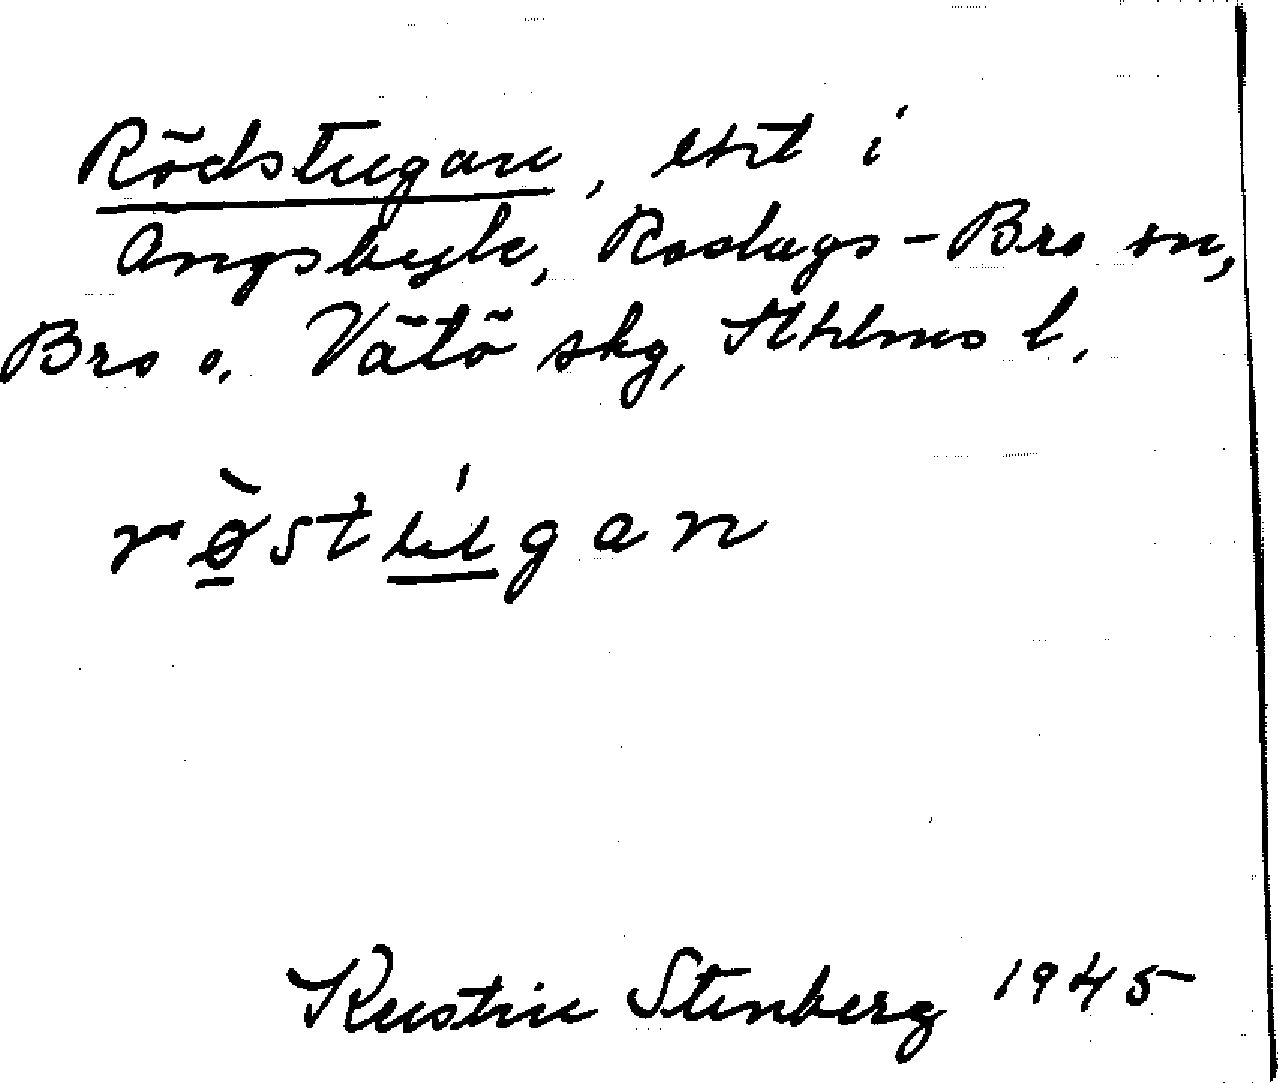 Rödstugan, ext i
Ängsbyle, Roslags-Bro sn,
Bro o. Vätö skg, Sthlms l.
røstugan
Kerstin Stenberg 1945